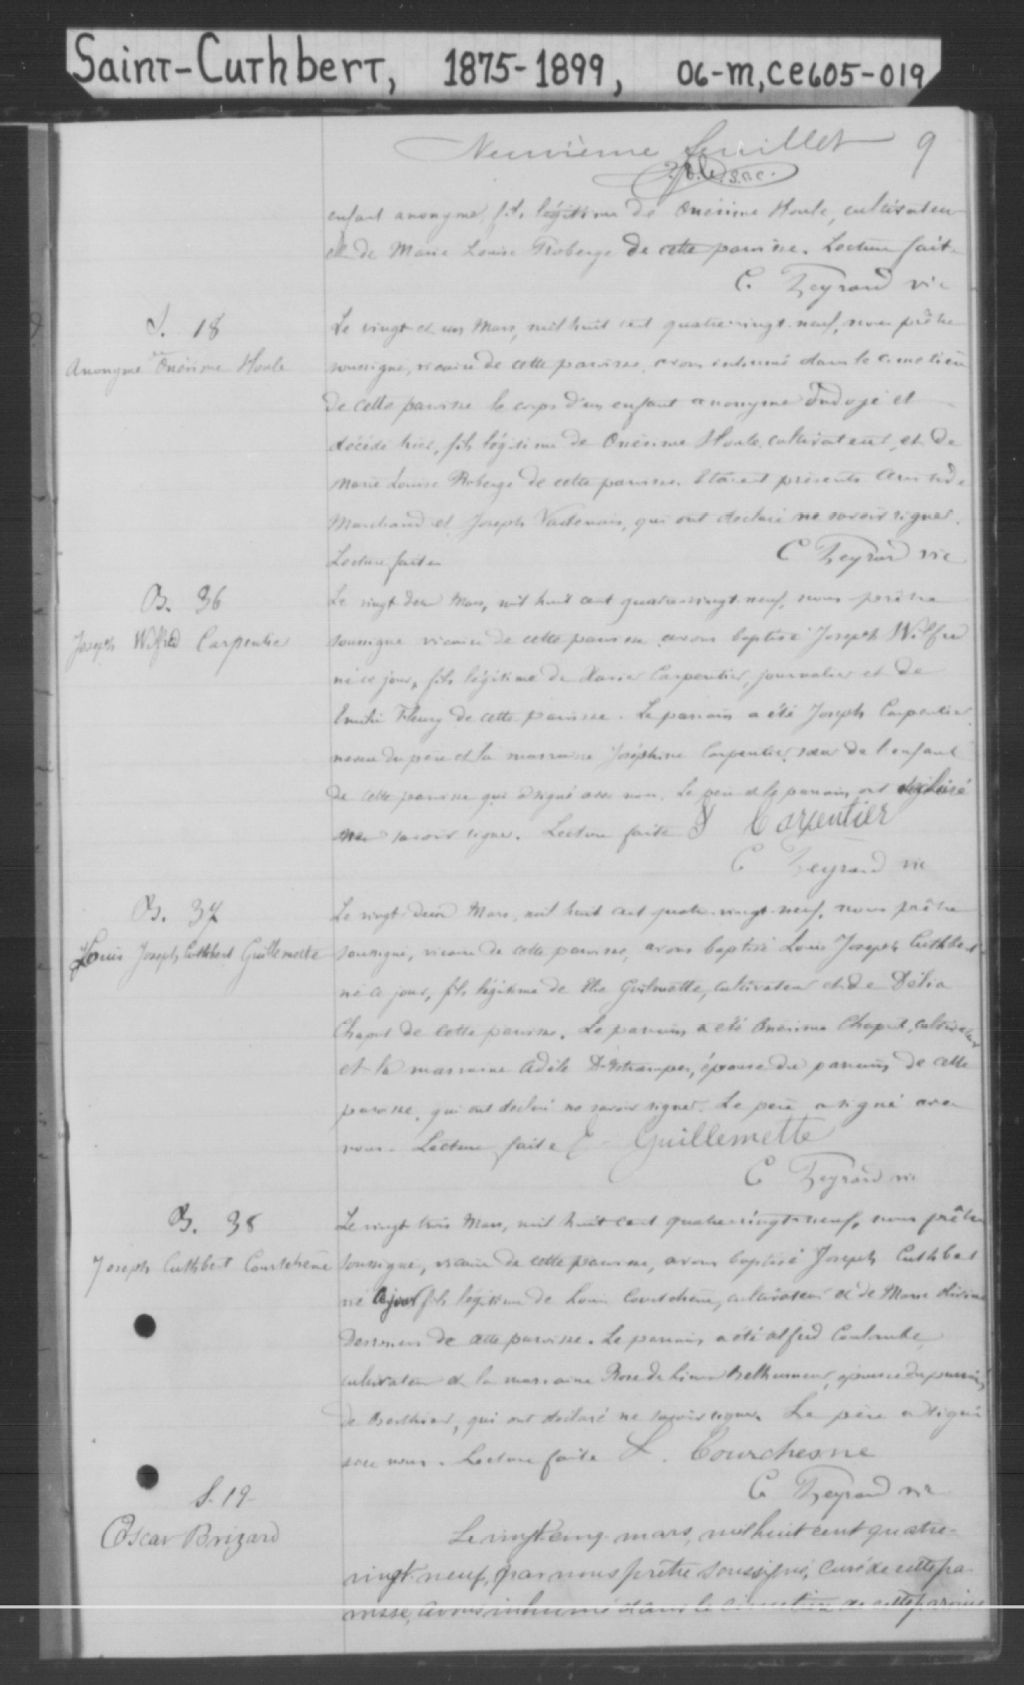 Saint-Cuthbert, 1875-1899, 06-M, CE605-019
Neuvième feuillet 9
enfant anonyme, fils légitime de Onésime Houle, cultivateur
et de Marie Louise Roberge de cette paroisse. Lecture faite.
C. Zeyrard vic
S. 18
Anonyme Onésime Houle
Le vingt et un Mars, mil huit cent quatre-vingt-neuf, nous prêtre
soussigné, vicaire de cette paroisse, avons inhumé dans le cimetière
de cette paroisse le corps d'un enfant anonyme ondoyé et
décédé hier, fils légitime de Onésime Houle, cultivateur, et de
Marie Louise Roberge de cette paroisse. Etaient présents
Marchand et Joseph Vadenais, qui ont déclaré ne savoir signer.
Lecture faite
C Zeyrard vic
B. 36
Joseph Wilfrid Carpentier
Le vingt deux Mars, mil huit cent quatre-vingt-neuf, nous prêtre
soussigné vicaire de cette paroisse avons baptisé Joseph Wilfrid
né ce jour, fils légitime de Xavier Carpentier, journalier et de
Emilie Fleury de cette paroisse. Le parrain a été Joseph Carpentier
neveu du père et la marraine Joséphine Carpentier, sœur de l'enfant
de cette paroisse qui a signé avec nous. Le père et le parrain ont déclaré
ne savoir signer. Lecture faite J Carpentier
C Zeyrard vic
B. 37
Louis Joseph Cuthbert Guillemette
Le vingt-deux Mars, mil huit cent quatre-vingt-neuf, nous prêtre
soussigné, vicaire de cette paroisse, avons baptisé Louis Joseph Cuthbert
né ce jour, fils légitime de Elie Guilmette, cultivateur et de Délia
Chaput de cette paroisse. Le parrain a été Onésime Chaput, cultivateur
et la marraine Adèle, épouse du parrain de cette
paroisse, qui ont déclaré ne savoir signer. Le père a signé avec
nous. Lecture faite E Guillemette
C Zeyrard vic
B. 38
Joseph Cuthbert Courchêne
Le vingt trois Mars, mil huit cent quatre-vingt-neuf, nous prêtre
soussigné, vicaire de cette paroisse, avons baptisé Joseph Cuthbert
né ce jour fils légitime de Louis Courchêne, cultivateur et de Marie
de cette paroisse. Le parrain a été Alfred Coulombe
cultivateur et la marraine Rose de Lima, épouse du parrain
de Berthier, qui ont déclaré ne savoir signer. Le père a signé
avec nous. Lecture faite L. Courchesne
C. Zeyrard vic
S. 19
Oscar Brizard
Le vingt-cinq mars, mil huit cent quatre-
vingt neuf, par nous prêtre soussigné, curé de cette pa-
roisse, avons inhumé dans le cimetière de cette paroisse